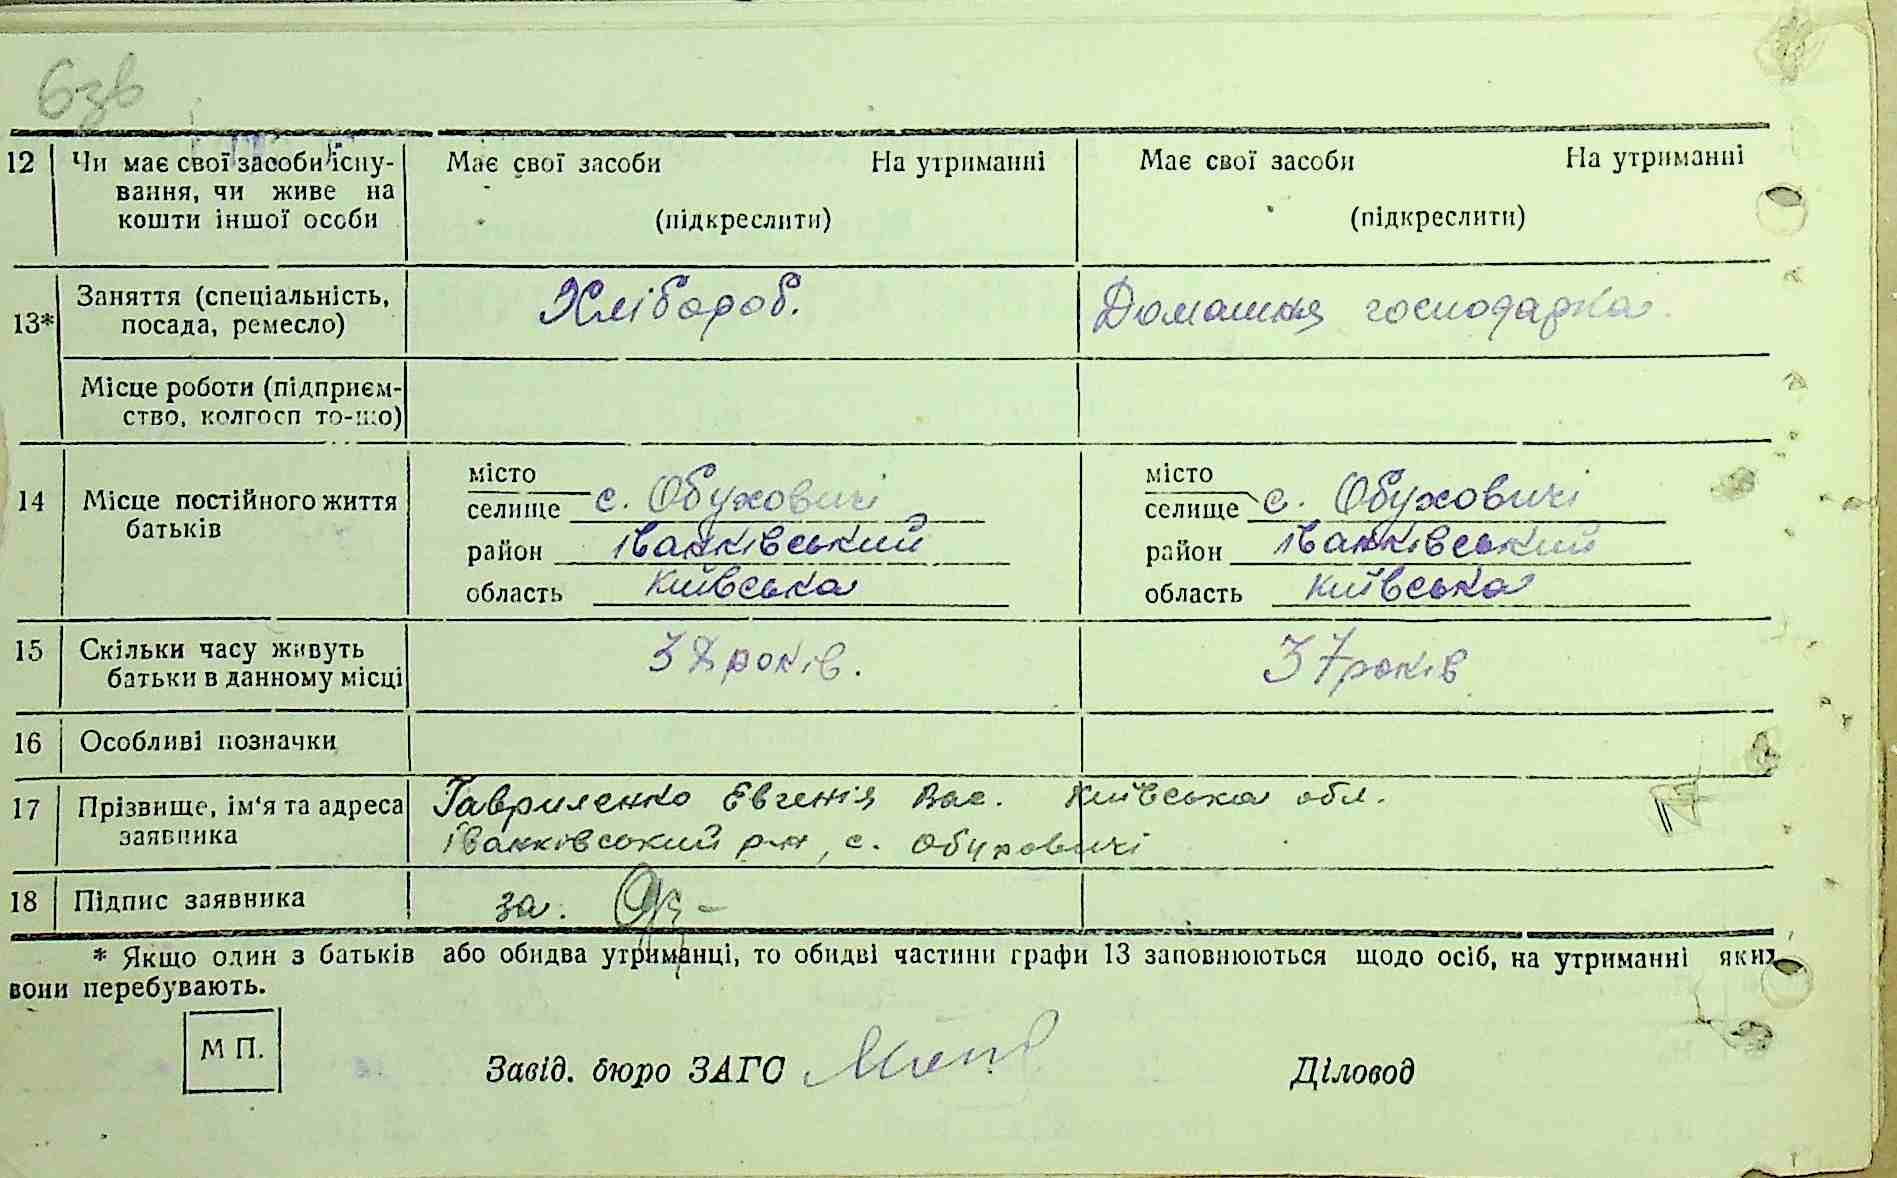 6зв
12 Чи має свої засоби існу- Має свої засоби На утриманні Має свої засоби На утриманні
вання, чи живе на
кошти іншої особи (підкреслити) (підкреслити)
Заняття (спеціальність, Хлібороб. Домашня господарка
13* посада, ремесло)
Місце роботи (підприєм-
ство, колгосп то-що)
місто місто
14 Місце постійного життя селище с. Обуховичі селище с. Обуховичі
батьків
район Іванківський район Іванківський
область Київська область Київська
15 Скільки часу живуть 38 років. 37 років
батьки в данному місці
16 Особливі позначки
17 Прізвище, ім'я та адреса Гавриленко Евгенія Вас. Київська обл.
заявника Іванківський р-н, с. Обуховичі
18 Підпис заявника за.
* Якщо один з батьків або обидва утриманці, то обидві частини графи 13 заповнюються щодо осіб, на утриманні яких
вони перебувають.
М П.
Завід. бюро ЗАГС Діловод